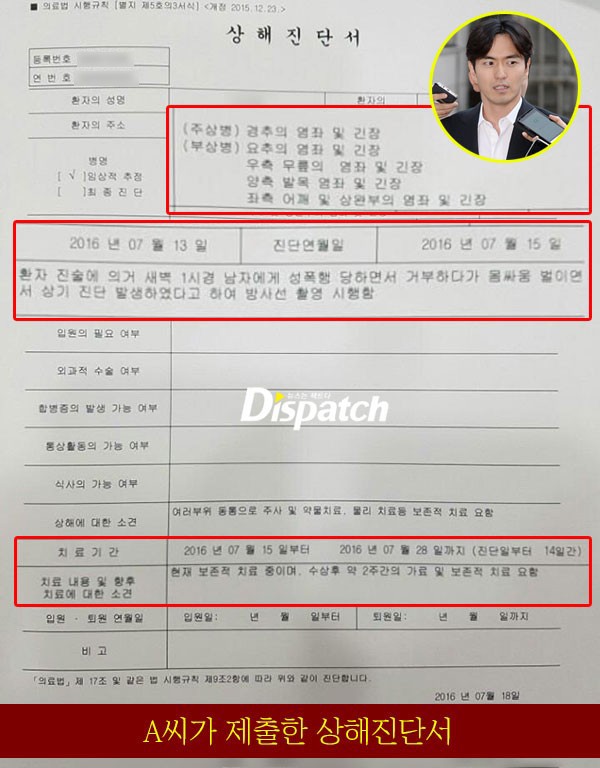 ■ 의료법 시행규칙 [별지 제5호의3서식] <개정 2015.12.23.>
상해진단서
등록번호
연 번 호
환자의 성명
환자의
환자의 주소
(주상병) 경추의 염좌 및 긴장
(부상병) 요추의 염좌 및 긴장
우측 무릎의 염좌 및 긴장
양측 발목 염좌 및 긴장
좌측 어깨 및 상완부의 염좌 및 긴장
병명
[ √ ]임상적 추정
[ ]최종진단
2016 년 07 월 13 일 진단연월일 2016 년 07 월 15 일
환자 진술에 의거 새벽 1시경 남자에게 성폭행 당하면서 거부하다가 몸싸움 벌이면
서 상기 진단 발생하였다고 하여 방사선 촬영 시행함
입원의 필요 여부
외과적 수술 여부
합병증의 발생 가능 여부
뉴스는 팩트다
Dispatch
통상활동의 가능 여부
식사의 가능 여부
상해에 대한 소견 여러부위 동통으로 주사 및 약물치료, 물리 치료등 보존적 치료 요함
치료기간 2016 년 07 월 15 일부터 2016 년 07 월 28 일까지 (진단일부터 14일간)
치료 내용 및 향후 치료에 대한 소견 현재 보존적 치료 중이며, 수상후 약 2주간의 가료 및 보존적 치료 요함
입원 · 퇴원 연월일 입원일: 년 월 일부터 퇴원일: 년 월 일까지
비 고
「의료법」제 17조 및 같은 법 시행규칙 제9조2항에 따라 위와 같이 진단합니다.
2016 년 07월 18일
A씨가 제출한 상해진단서